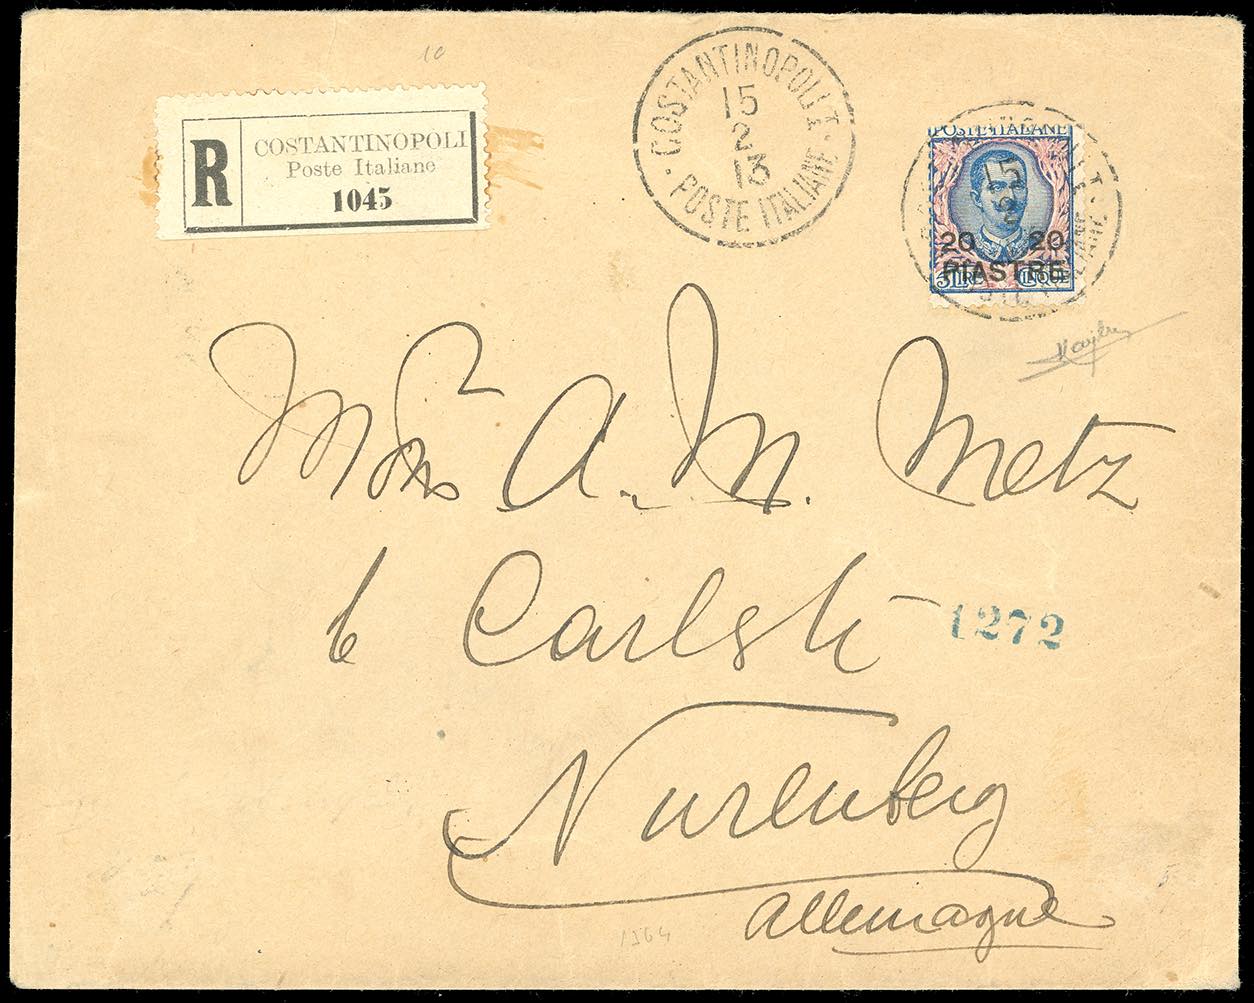 10
R COSTANTINOPOLI
Poste Italiane
1045
COSTANTINOPOLI I.
15
2
13
POSTE ITALIANE
POSTE·ITALIANE
15
2
20 20
PIASTRE
5 LIRE CINQUE
A. M. Metz
6 Carlstr
1272
Nurenberg
Allemagne